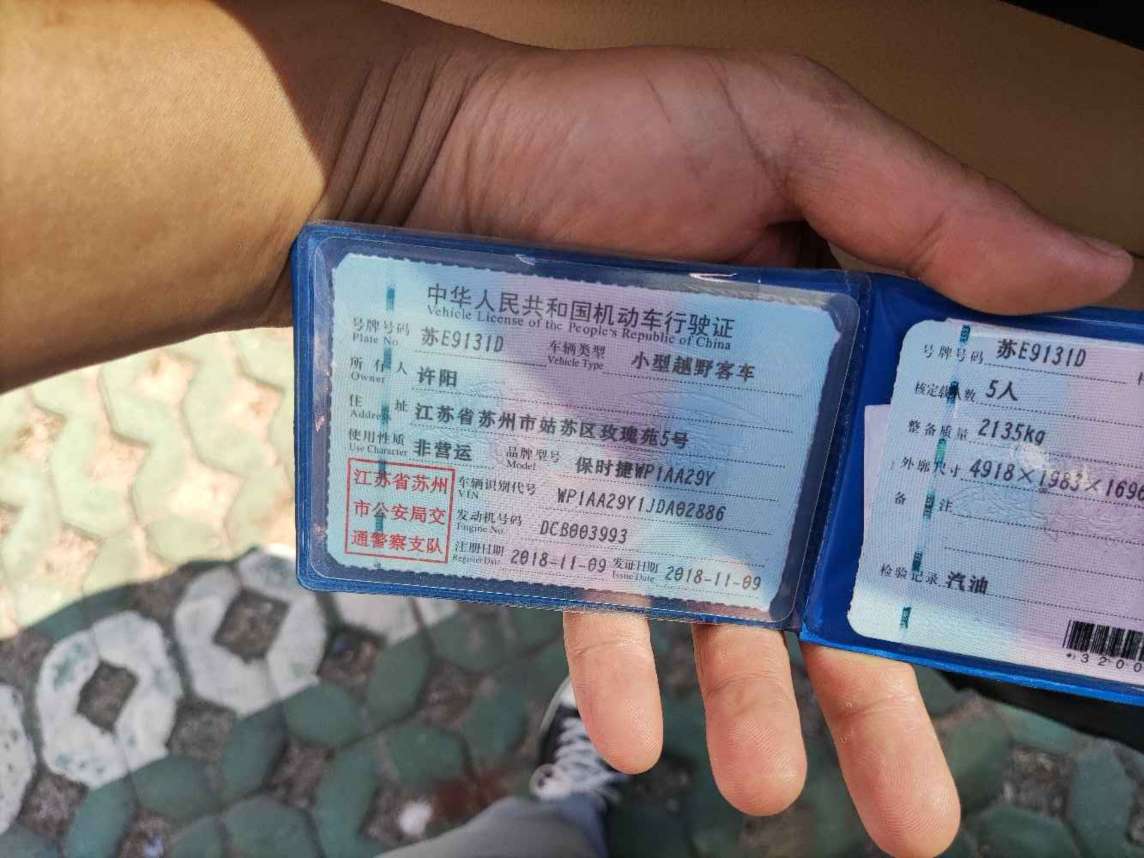 中华人民共和国机动车行驶证
Vehicle License of the People's Republic of China
号牌号码 苏E9131D 车辆类型 小型越野客车
Plate No. Vehicle Type
所有人 许阳
Owner
住址 江苏省苏州市姑苏区玫瑰苑5号
Address
使用性质 非营运 品牌型号 保时捷WP1AA29Y
Use Character Model
江苏省苏州
市公安局交
通警察支队
车辆识别代号 WP1AA29Y1JDA02886
VIN
发动机号码 DCB003993
Engine No.
注册日期 2018-11-09 发证日期 2018-11-09
Register Date Issue Date
号牌号码 苏E9131D
核定载人数 5人
整备质量 2135kg
外廓尺寸 4918×1983×1696
备注
检验记录 汽油
*3200